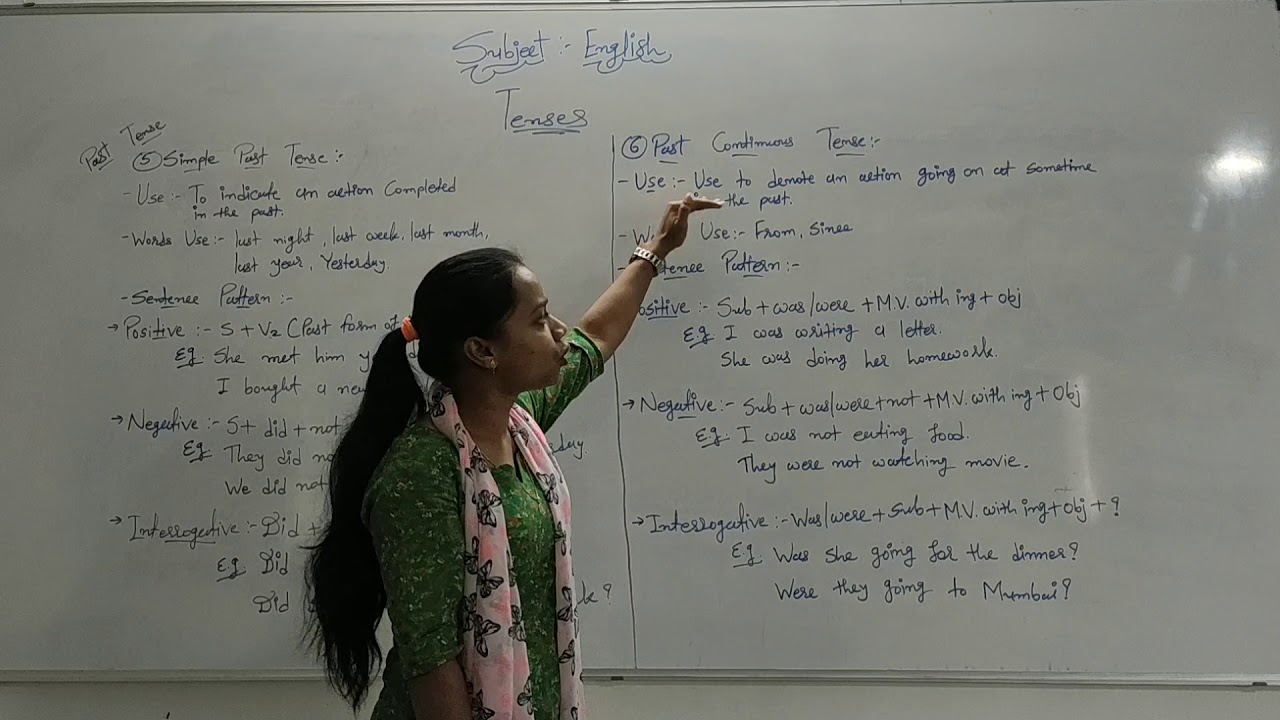 Subject :- English
Tenses
Past Tense
⑤ Simple Past Tense :-
- Use :- To indicate an action Completed
in the past.
- Words Use :- last night, last week, last month,
last year, Yesterday.
- Sentence Pattern :-
→ Positive :- S + V2 (Past form of
Eg. She met him
I bought a new
→ Negative :- S + did + not
Eg. They did
We did not
→ Interrogative :- Did +
Eg. Did
Did ?
⑥ Past Continuous Tense :-
- Use :- Use to denote an action going on at sometime
the past.
- Use :- From, Since
Pattern :-
:- Sub + was/were + M.V. with ing + obj
E.g. I was writing a letter.
She was doing her homework.
→ Negative :- Sub + was/were + not + M.V. with ing + Obj
Eg. I was not eating food.
They were not watching movie.
→ Interrogative :- Was/were + Sub + M.V. with ing + Obj + ?
Eg. Was she going for the dinner?
Were they going to Mumbai?